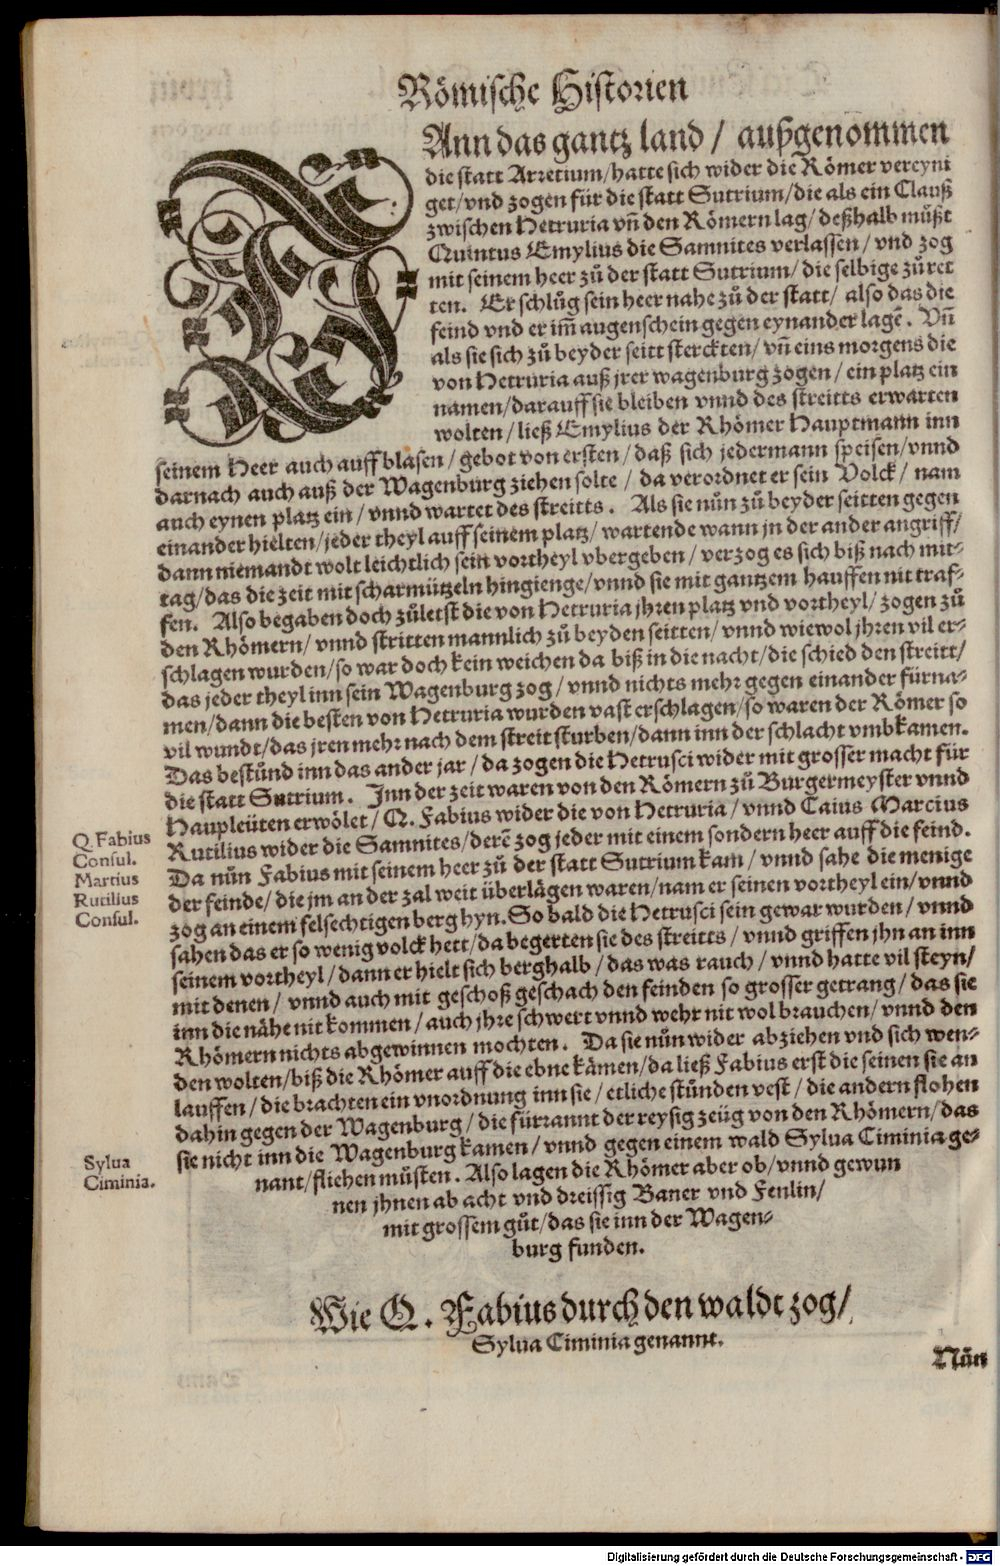 Römische Historien
DAnn das gantz land / außgenommen
die statt Arretium/hatte sich wider die Römer vereyni
get/vnd zogen für die statt Sutrium/die als ein Clauß
zwischen Hetruria vñ den Römern lag/deßhalb můßt
Quintus Emylius die Samnites verlassen/vnd zog
mit seinem heer zů der statt Sutrium/die selbige zů ret
ten. Er schlůg sein heer nahe zů der statt/also das die
feind vnd er im̃ augenschein gegen eynander lagẽ. Vñ
als sie sich zů beyder seitt sterckten/vñ eins morgens die
von Hetruria auß jrer wagenburg zogen/ein platz ein
namen/darauff sie bleiben vnnd des streitts erwarten
wolten/ließ Emylius der Rhömer Hauptmann inn
seinem Heer auch auff blasen/gebot von ersten/daß sich jedermann speisen/vnnd
darnach auch auß der Wagenburg ziehen solte/da verordnet er sein Volck/nam
auch eynen platz ein/vnnd wartet des streitts. Als sie nůn zů beyder seitten gegen
einander hielten/jeder theyl auff seinem platz/wartende wann jn der ander angriff/
dann niemandt wolt leichtlich sein vortheyl vbergeben/verzog es sich biß nach mit-
tag/das die zeit mit scharmützeln hingienge/vnnd sie mit gantzem hauffen nit traf-
fen. Also begaben doch zůletst die von Hetruria jhren platz vnd vortheyl/zogen zů
den Rhömern/vnnd stritten mannlich zů beyden seitten/vnnd wiewol jhren vil er-
schlagen wurden/so war doch kein weichen da biß in die nacht/die schied den streitt/
das jeder theyl inn sein Wagenburg zog/vnnd nichts mehr gegen einander fürna-
men/dann die besten von Hetruria wurden vast erschlagen/so waren der Römer so
vil wundt/das jren mehr nach dem streit sturben/dann inn der schlacht vmbkamen.
Das bestůnd inn das ander jar/da zogen die Hetrusci wider mit grosser macht für
die statt Sutrium. Inn der zeit waren von den Römern zů Burgermeyster vnnd
Haupleüten erwölet/Q. Fabius wider die von Hetruria/vnnd Caius Marcius
Rutilius wider die Samnites/derẽ zog jeder mit einem sondern heer auff die feind.
Da nůn Fabius mit seinem heer zů der statt Sutrium kam/vnnd sahe die menige
der feinde/die jm an der zal weit überlägen waren/nam er seinen vortheyl ein/vnnd
zog an einem felsechtigen berg hyn. So bald die Hetrusci sein gewar wurden/vnnd
sahen das er so wenig volck hett/da begerten sie des streitts/vnnd griffen jhn an inn
seinem vortheyl/dann er hielt sich berghalb/das was rauch/vnnd hatte vil steyn/
mit denen/vnnd auch mit geschoß geschach den feinden so grosser getrang/das sie
inn die nähe nit kommen/auch jhre schwert vnnd wehr nit wol brauchen/vnnd den
Rhömern nichts abgewinnen mochten. Da sie nůn wider abziehen vnd sich wen-
den wolten/biß die Rhömer auff die ebne kämen/da ließ Fabius erst die seinen sie an
lauffen/die brachten ein vnordnung inn sie/etliche stůnden vest/die andern flohen
dahin gegen der Wagenburg/die fürrannt der reysig zeüg von den Rhömern/das
sie nicht inn die Wagenburg kamen/vnnd gegen einem wald Sylua Ciminia ge-
nant/fliehen můsten. Also lagen die Rhömer aber ob/vnnd gewun
nen jhnen ab acht vnd dreissig Baner vnd Fenlin/
mit grossem gůt/das sie inn der Wagen-
burg funden.
Q. Fabius
Consul.
Martius
Rutilius
Consul.
Sylua
Ciminia.
Wie Q. Fabius durch den waldt zog/
Sylua Ciminia genannt.
Nůn
Digitalisierung gefördert durch die Deutsche Forschungsgemeinschaft - DFG